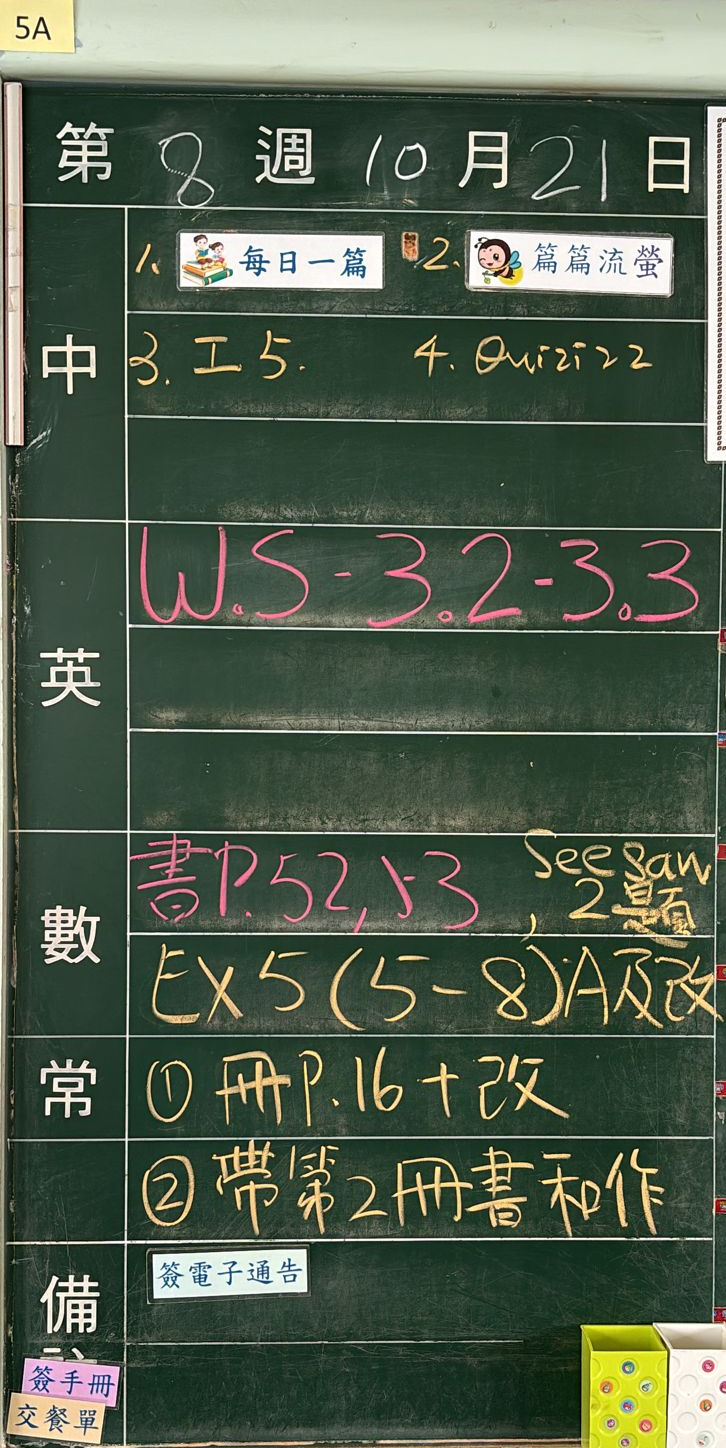 5A
第 8 週 10 月 21 日
中
1. 每日一篇 2. 篇篇流螢
3. 工5. 4. Quizizz
英
W.S - 3.2 - 3.3
數
書P.52,53, Seesaw 2題
EX 5 (5-8) A及改
常
① 冊P.16 + 改
② 帶第2冊書和作
備
簽電子通告
簽手冊
交餐單